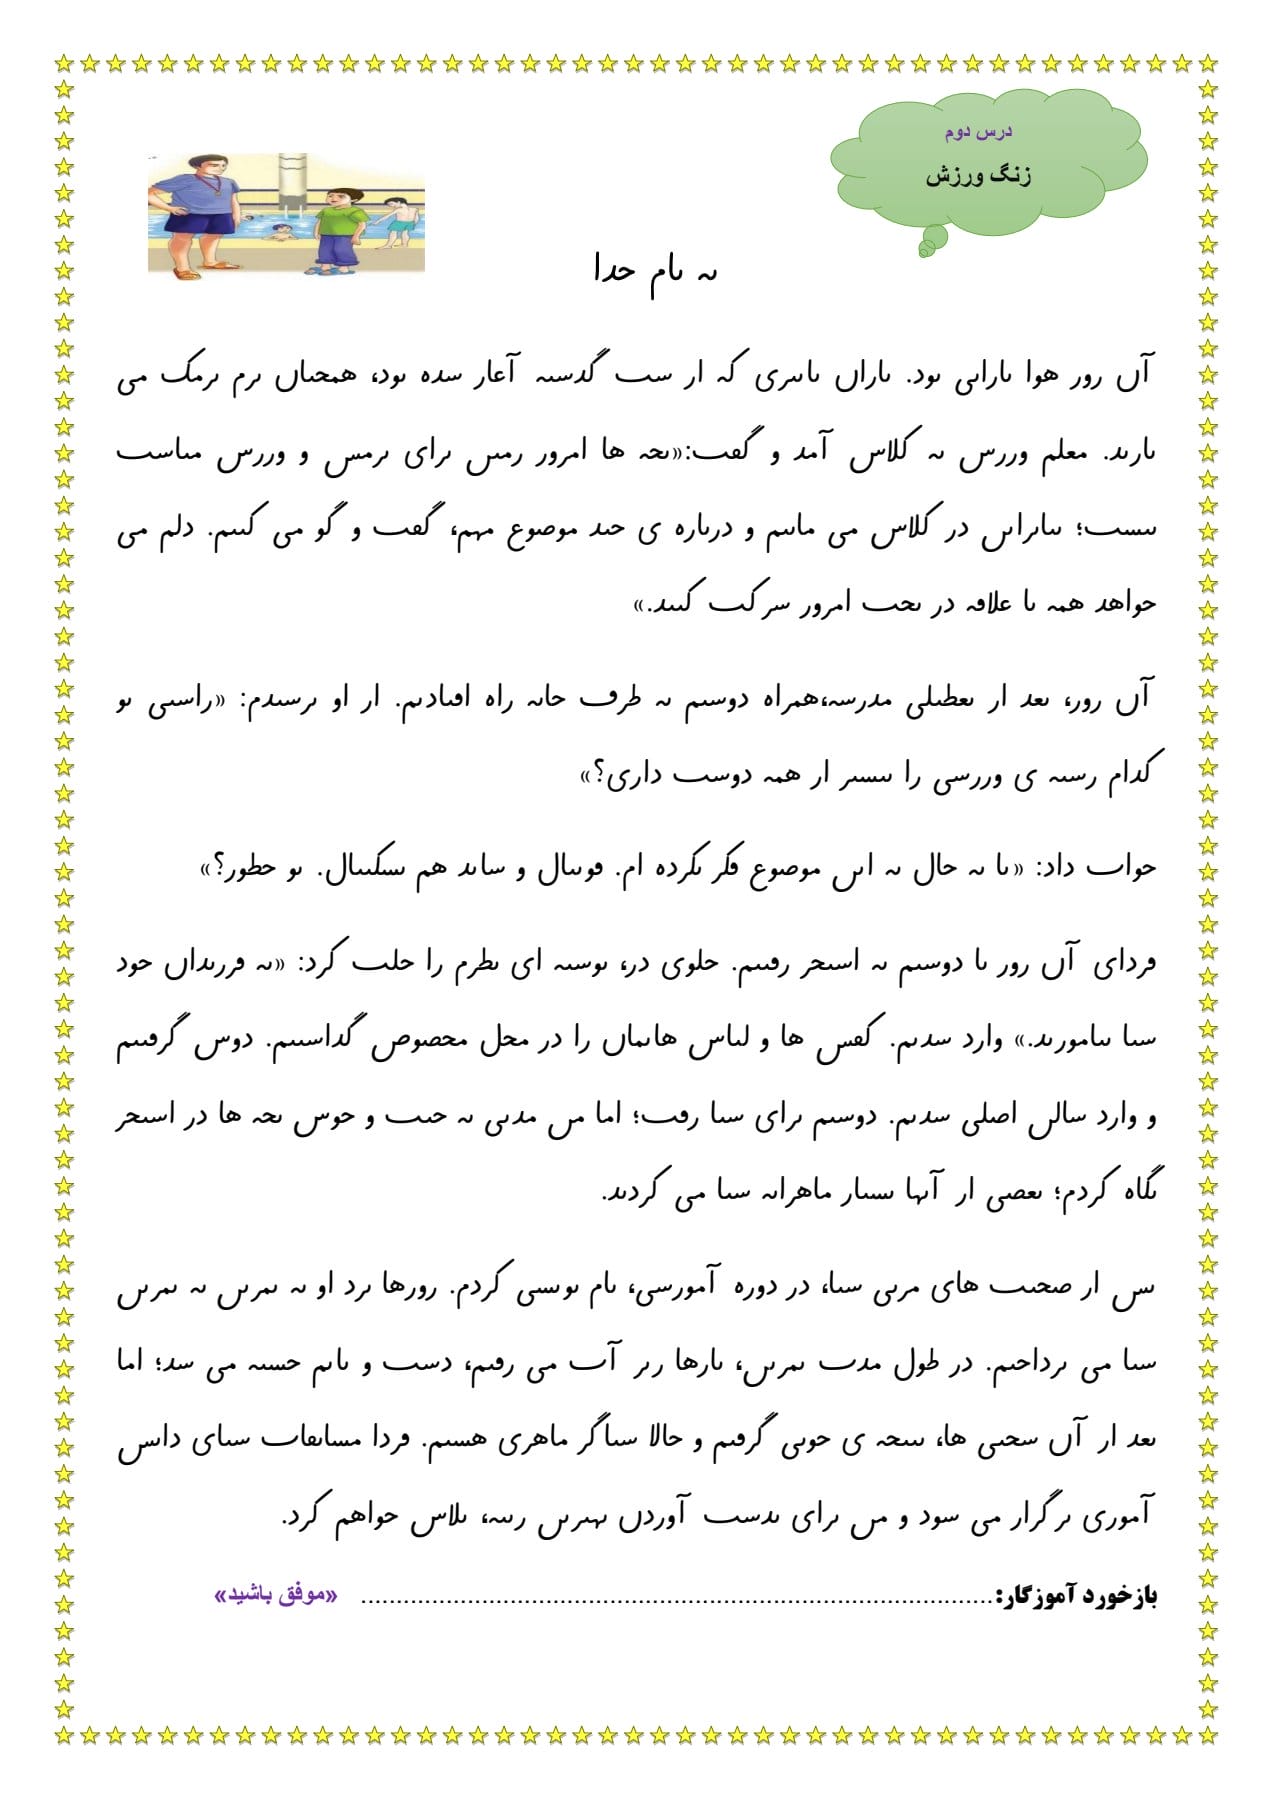 درس دوم
زنگ ورزش
به نام خدا
آن روز هوا بارانی بود. باران پاییزی که از شب گذشته آغاز شده بود، همچنان نرم نرمک می
بارید. معلم ورزش به کلاس آمد و گفت:«بچه ها امروز زمین برای نرمش و ورزش مناسب
نیست؛ بنابراین در کلاس می مانیم و درباره ی چند موضوع مهم، گفت و گو می کنیم. دلم می
خواهد همه با علاقه در بحث امروز شرکت کنید.»
آن روز، بعد از تعطیلی مدرسه،همراه دوستم به طرف خانه راه افتادیم. از او پرسیدم: «راستی تو
کدام رشته ی ورزشی را بیشتر از همه دوست داری؟»
جواب داد: «تا به حال به این موضوع فکر نکرده ام. فوتبال و شاید هم بسکتبال. تو چطور؟»
فردای آن روز با دوستم به استخر رفتیم. جلوی در، نوشته ای نظرم را جلب کرد: «به فرزندان خود
شنا بیاموزید.» وارد شدیم. کفش ها و لباس هایمان را در محل مخصوص گذاشتیم. دوش گرفتیم
و وارد سالن اصلی شدیم. دوستم برای شنا رفت؛ اما من مدتی به جنب و جوش بچه ها در استخر
نگاه کردم؛ بعضی از آنها بسیار ماهرانه شنا می کردند.
پس از صحبت های مربی شنا، در دوره آموزشی، نام نویسی کردم. روزها نزد او به تمرین به تمرین
شنا می پرداختم. در طول مدت تمرین، بارها زیر آب می رفتم، دست و پایم خسته می شد؛ اما
بعد از آن سختی ها، نتیجه ی خوبی گرفتم و حالا شناگر ماهری هستم. فردا مسابقات شنای دانش
آموزی برگزار می شود و من برای بدست آوردن بهترین رتبه، تلاش خواهم کرد.
بازخورد آموزگار:........................................................................................ «موفق باشید»